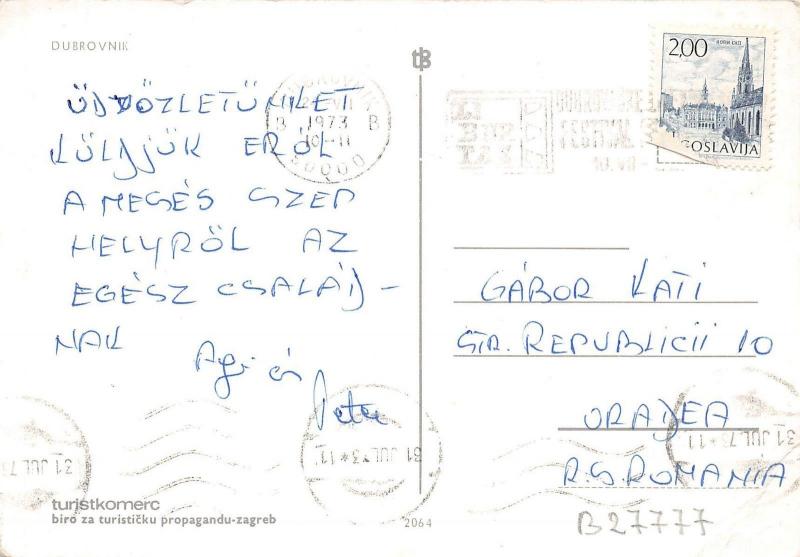 DUBROVNIK
ÜDVÖZLETÜNKET
KÜLDJÜK ERŐL
A MESÉS SZÉP
HELYRŐL AZ
EGÉSZ CSALÁD-
NAK
Agi és
Peter
turistkomerc
biro za turističku propagandu-zagreb
2064
2,00
JUGOSLAVIJA
1973
B B
10-11
50000
GÁBOR KATI
STR. REPUBLICII 10
ORADEA
R.S. ROMANIA
31 JUL 73
31 JUL 73*11
31 JUL 73*11
B27777